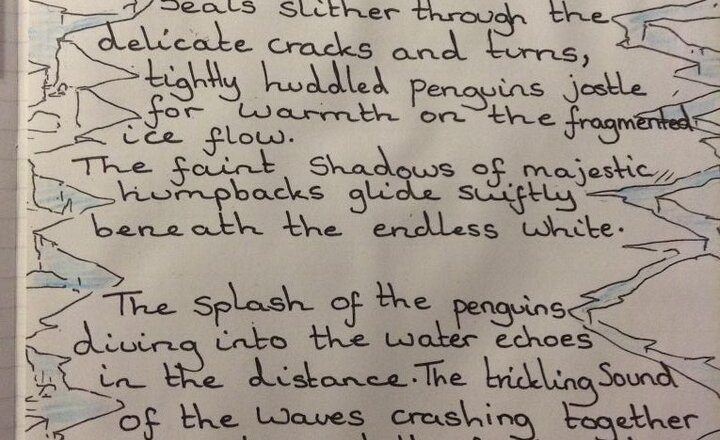 Seals slither through the
delicate cracks and turns,
tightly huddled penguins jostle
for warmth on the fragmented
ice flow.
The faint shadows of majestic
humpbacks glide swiftly
beneath the endless white.
The splash of the penguins
diving into the water echoes
in the distance. The trickling Sound
of the waves crashing together